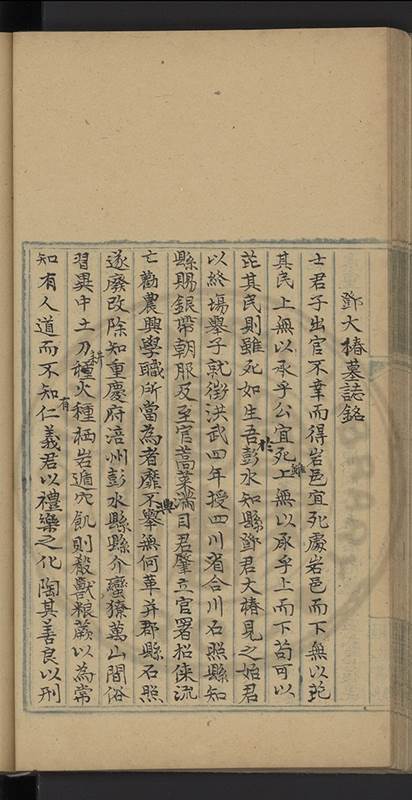 鄧大椿墓誌銘
士君子出官不幸而得岩邑宜死處岩邑而下無以芘
其民上無以承乎公宜死雖上無以承乎上而下苟可以
芘其民則雖死如生吾於彭水知縣鄧君大椿見之始君
以終場舉子就徵洪武四年授四川省合川石照縣知
縣賜銀帶朝服及至官蒿菜滿目君肇立官署招徠流
亡勸農興學職所當為者靡不舉興無何革并郡縣石照
遂廢改除知重慶府涪州彭水縣縣介蠻獠萬山間俗
習異中土刀耕種火種栖岩遁穴飢則殺獸粮蕨以為常
知有人道而不知有仁義君以禮樂之化陶其善良以刑